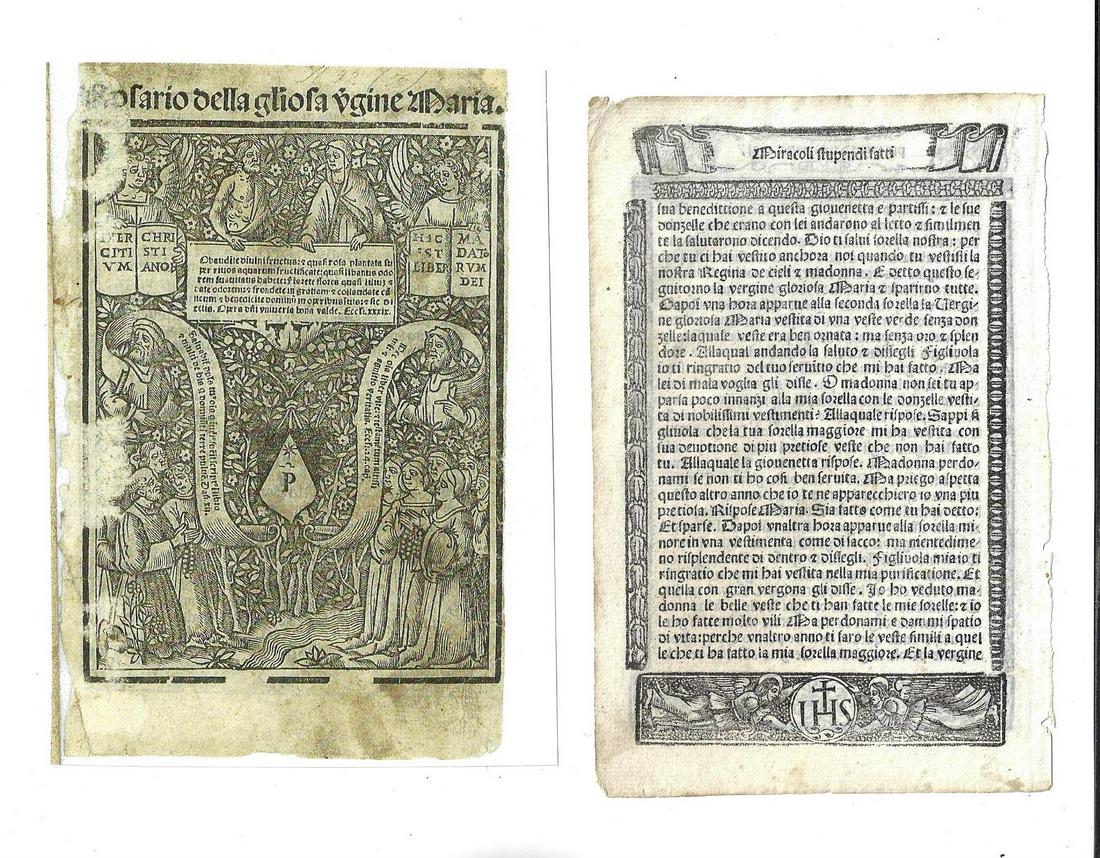 Rosario della gliosa v̄gine Maria.
EXER
CITI
VM
CHRI
STI
ANOR
HIC
EST
LIBER
MĀ
DATO
RVM
DEI
Obaudite diuini fructus: & quasi rosa plantata su
per riuos aquarum fructificate: quasi libanus odo
rem suauitatis habete: Florete flores quasi lilium: &
date odorem: & frondete in gratiam & collaudate cā
ticum & benedicite dominum in operibus suis: & sic di
cetis. Opera dn̄i vniuersa bona valde. Eccli. xxxix.
P
Miracoli stupendi fatti
sua benedittione a questa giouenetta e partissi: & le sue
donzelle che erano con lei andarono al letto & similmen
te la salutarono dicendo. Dio ti salui sorella nostra: per
che tu ci hai vestito anchora noi quando tu vestisti la
nostra Regina de cieli & madonna. E detto questo se
guitorno la vergine gloriosa Maria & sparirno tutte.
Dapoi vna hora apparue alla seconda sorella la Vergi
ne gloriosa Maria vestita di vna veste verde senza don
zelle: laquale veste era ben ornata: ma senza oro & splen
dore. Allaqual andando la saluto & dissegli Figliuola
io ti ringratio del tuo seruitio che mi hai fatto. Ma
lei di mala voglia gli disse. O madonna non sei tu ap-
parsa poco innanzi alla mia sorella con le donzelle vesti-
ta di nobilissimi vestimenti? Allaquale rispose. Sappi fi
gliuola che la tua sorella maggiore mi ha vestita con
sua deuotione di piu pretiose veste che non hai fatto
tu. Allaquale la giouenetta rispose. Madonna perdo-
nami se non ti ho cosi ben seruita. Ma priego aspetta
questo altro anno che io te ne apparecchiero io vna piu
pretiosa. Rispose Maria. Sia fatto come tu hai detto:
Et sparse. Dapoi vnaltra hora apparue alla sorella mi-
nore in vna vestimenta come di sacco: ma nientedime-
no risplendente di dentro & dissegli. Figliuola mia io ti
ringratio che mi hai vestita nella mia purificatione. Et
quella con gran vergona gli disse. Io ho veduto ma-
donna le belle veste che ti han fatte le mie sorelle: & io
le ho fatte molto vili Ma perdonami e dammi spatio
di vita: perche vnaltro anno ti faro le veste simili a quel
le che ti ha fatto la mia sorella maggiore. Et la vergine
IHS